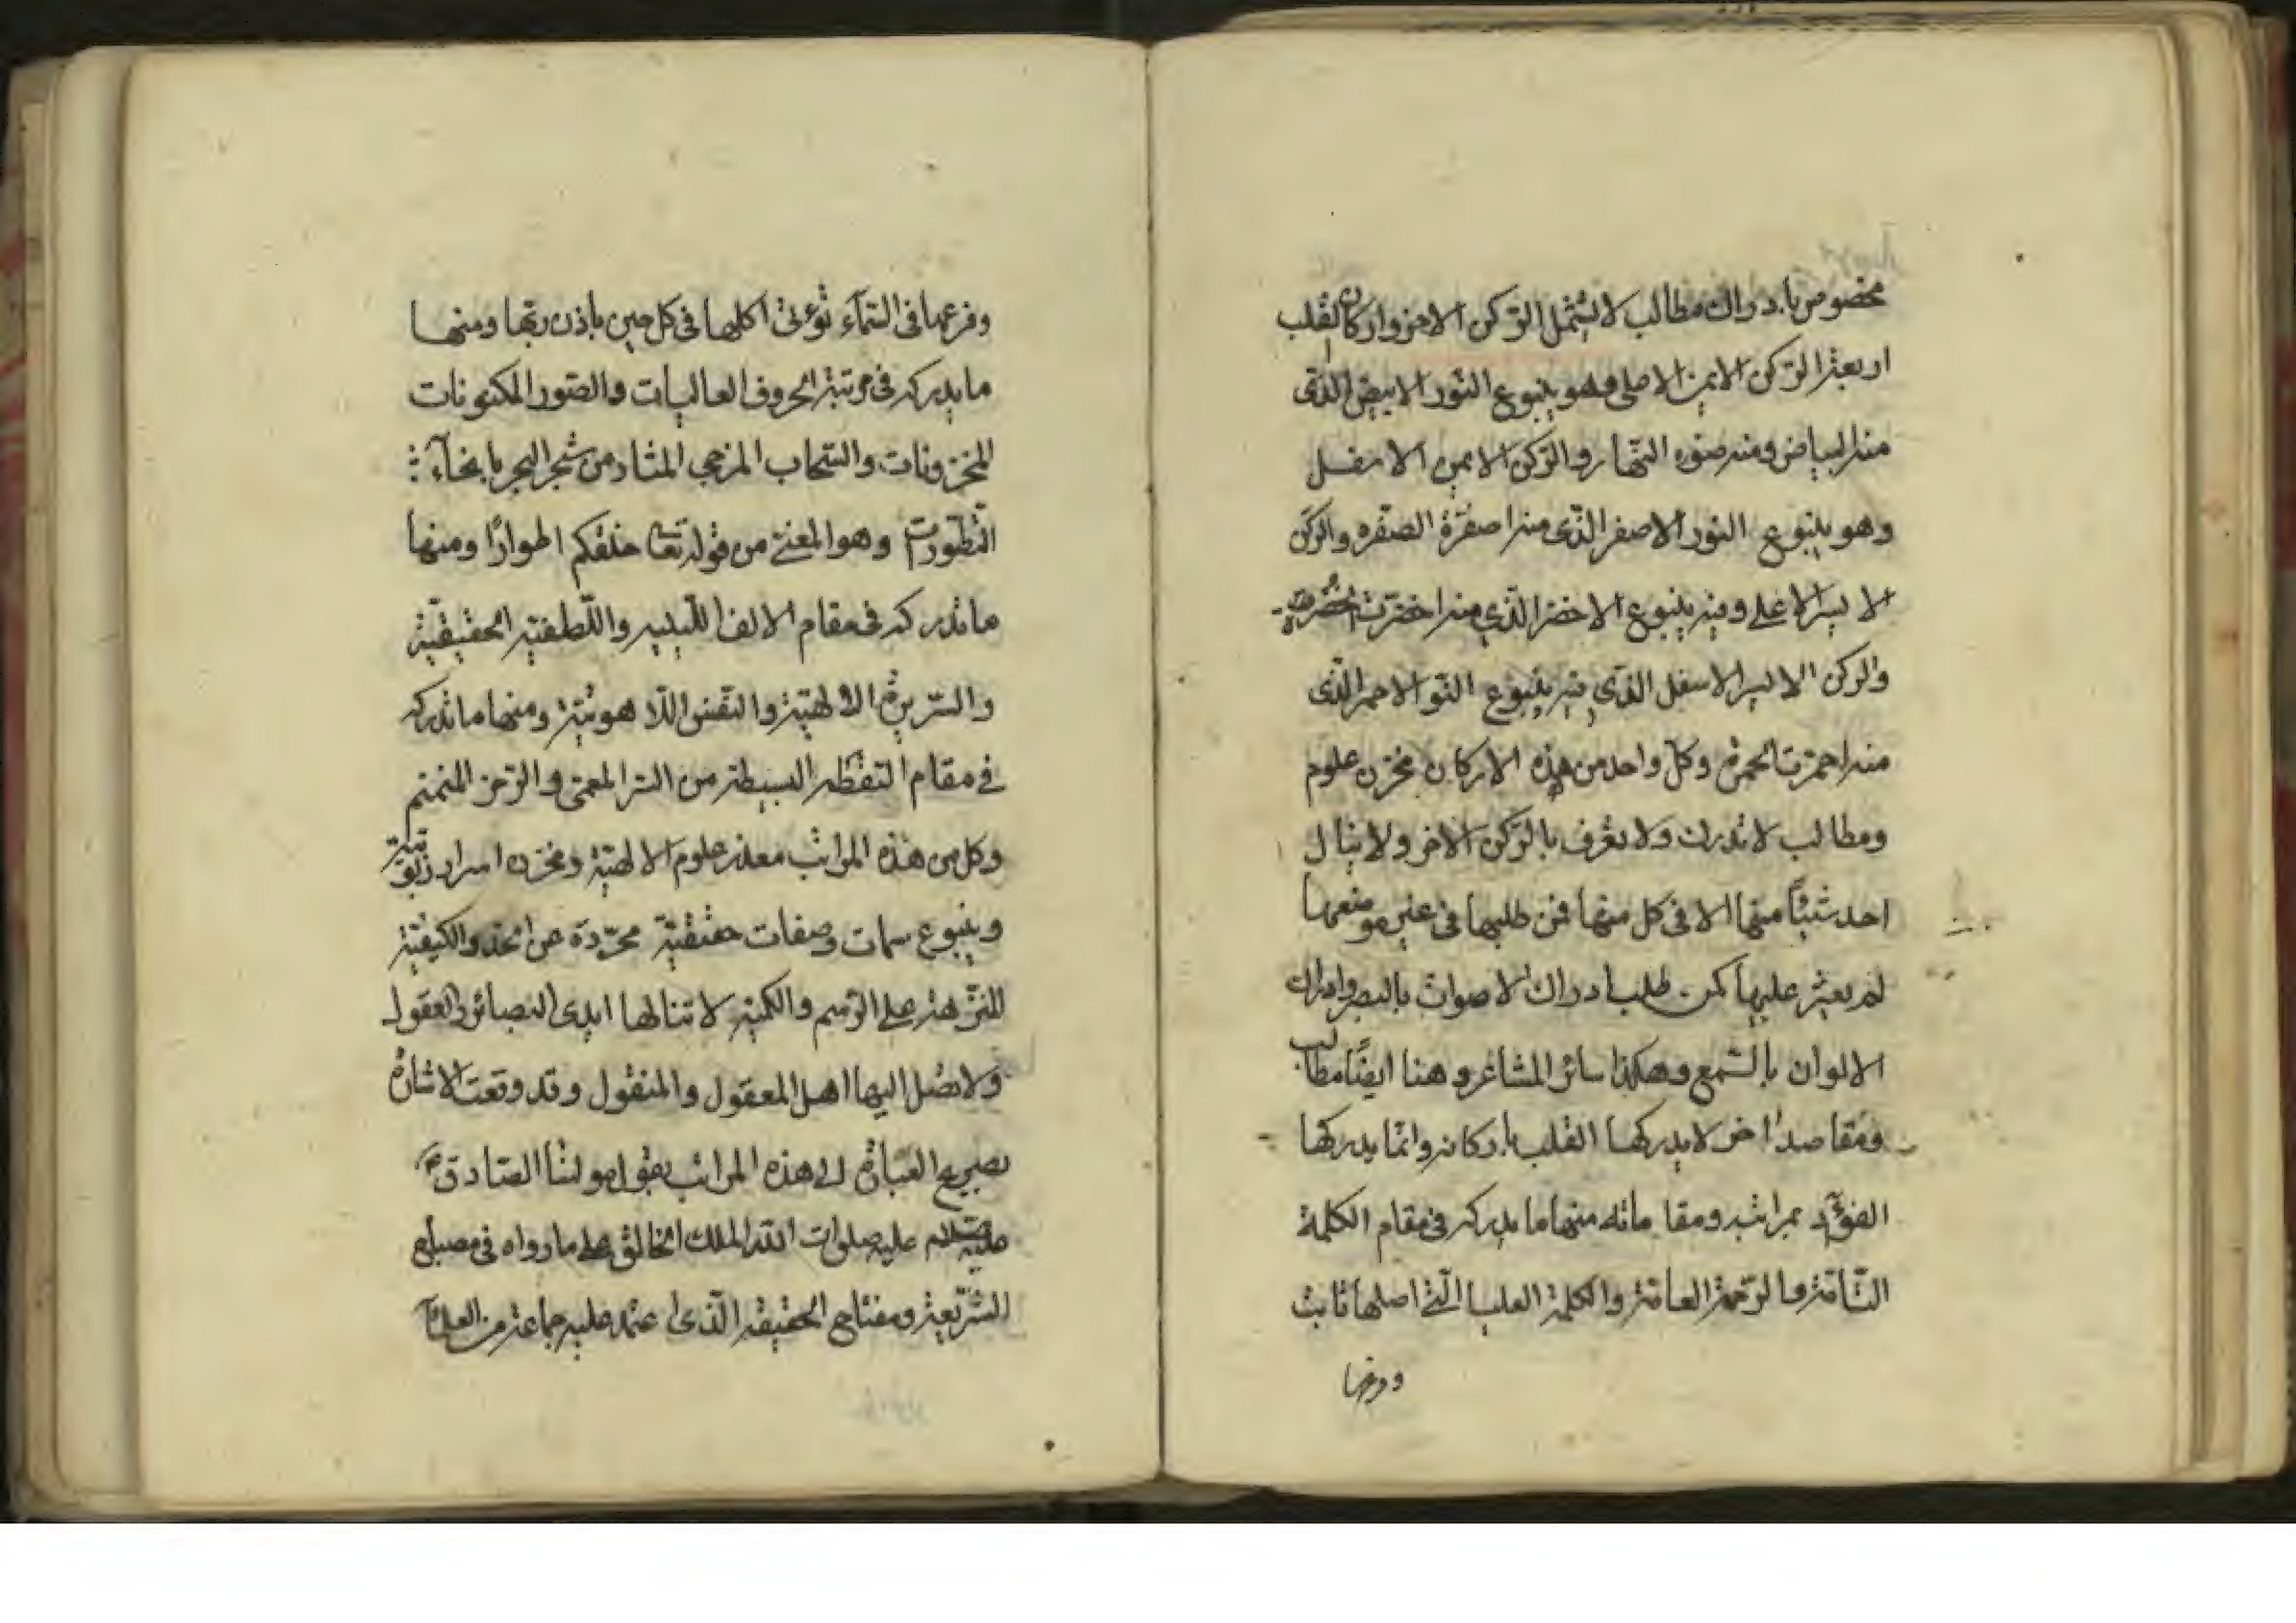 مخصوص بادراك مطالب لا يشمل الركن الاخر واركان القلب
اربعة الركن الايمن الاصلى وهو ينبوع النور الابيض الذى
منه البياض ومنه ضوء النهار والركن الايمن الاسفل
وهو ينبوع النور الاصفر الذى منه اصفرّة الصفره والركن
الايسر الاعلى وفيه ينبوع الاخضر الذي منه اخضرت الخضرة
والركن الايسر الاسفل الذي فيه ينبوع النو الاحمر الذى
منه احمرت الحمرة وكل واحد من هذه الاركان مخزن علوم
ومطالب لا تدرك ولا تعرف بالركن الاخر ولا ينال
احد شيئًا منها الا فى كل منها فمن طلبها فى غير موضعها
لم يعثر عليها كمن طلب ادراك الاصوات بالبصر وادراك
الالوان بالسمع وهكذا سائر المشاعر وهنا ايضًا مطالب
ومقاصد اخر لا يدركها القلب باركانه وانما يدركها
الفوآد بمراتبه ومقاماته منها ما يدركه فى مقام الكلمة
التامة والرحمة العامة والكلمة العليا التي اصلها ثابت
وفرعها
وفرعها فى السمآء تؤتى اكلها فى كل حين باذن ربها ومنها
ما يدركه فى مرتبة الحروف العاليات والصور المكنونات
المخزونات والسحاب المزجي المثار من شجر البحر
التطورات وهو المعنى من قوله تعا خلقكم اطوارًا ومنها
ما تدركه فى مقام الالف اللينيه واللطفية الحقيقية
والسرية الالهية والنفس اللاهوتية ومنها ما تدركه
في مقام النقطه البسيطة من السر المعمى والرمز المنمنم
وكل من هذه المراتب معدن علوم الالهية ومخزن اسرار
وينبوع سمات وصفات حقيقية مجردة عن الحد والكيفية
المنزهة على الرسم والكمية لا تنالها ايدى البصائر والعقول
ولا تصل اليها اهل المعقول والمنقول وقد وقعت الاشارة
بصريح العبارة الى هذه المراتب بقول مولنا الصادق ع
عليه صلوات الله الملك الخالق على ما رواه فى مصباح
الشريعة ومفتاح الحقيقه الذى اعتمد عليه جماعة من العلمآء